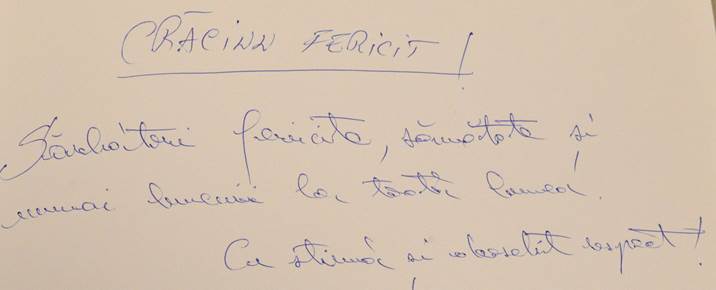 CRĂCIUN FERICIT !
Sărbători fericite, sănătate și
numai bucurii la toată lumea.
Cu stimă și deosebit respect !